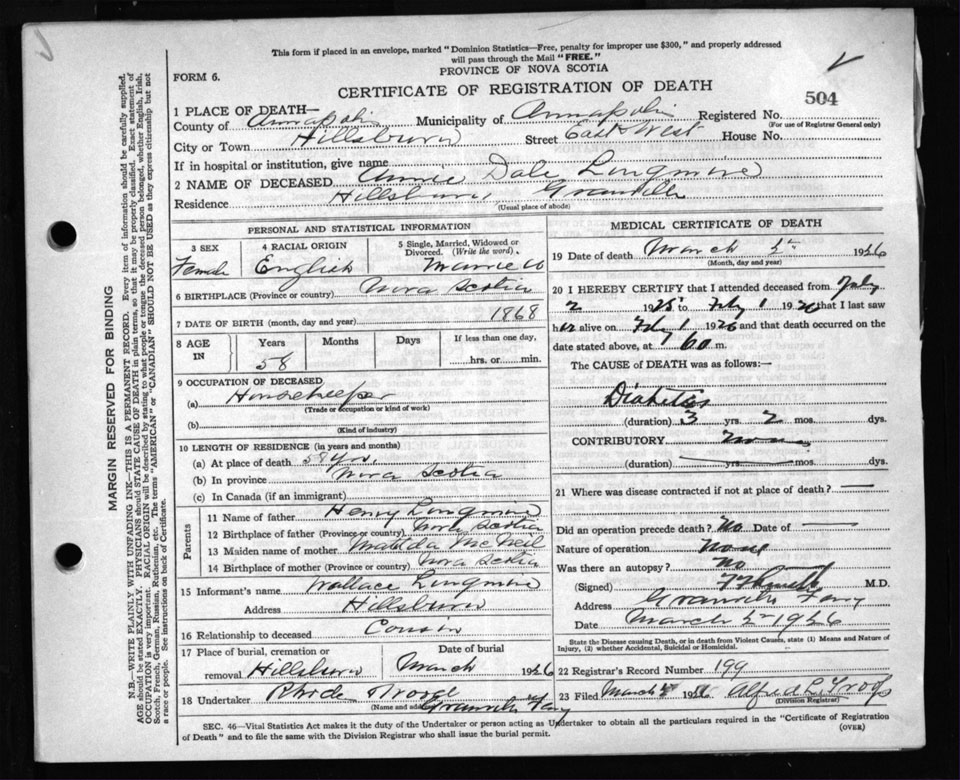 This form if placed in an envelope, marked "Dominion Statistics—Free, penalty for improper use $300," and properly addressed
will pass through the Mail "FREE."
PROVINCE OF NOVA SCOTIA
FORM 6.
CERTIFICATE OF REGISTRATION OF DEATH
504
1 PLACE OF DEATH—
County of Annapolis Municipality of Annapolis Registered No.
(For use of Registrar General only)
City or Town Hillsburn Street East & West House No.
If in hospital or institution, give name
2 NAME OF DECEASED Annie Dale Longmire
Residence Hillsburn, Granville
(Usual place of abode)
PERSONAL AND STATISTICAL INFORMATION
3 SEX 4 RACIAL ORIGIN 5 Single, Married, Widowed or Divorced. (Write the word)
Female English Married
6 BIRTHPLACE (Province or country) Nova Scotia
7 DATE OF BIRTH (month, day and year) 1868
8 AGE IN Years Months Days If less than one day,
58 hrs. or min.
9 OCCUPATION OF DECEASED
(a) Housekeeper
(Trade or occupation or kind of work)
(b)
(Kind of industry)
10 LENGTH OF RESIDENCE (in years and months)
(a) At place of death 58 yrs.
(b) In province Nova Scotia
(c) In Canada (if an immigrant)
Parents
11 Name of father Henry Longmire
12 Birthplace of father (Province or country) Nova Scotia
13 Maiden name of mother Matilda McNeil
14 Birthplace of mother (Province or country) Nova Scotia
15 Informant's name Wallace Longmire
Address Hillsburn
16 Relationship to deceased Cousin
17 Place of burial, cremation or removal Hillsburn Date of burial March 1926
18 Undertaker
(Name and address) Granville Ferry
MEDICAL CERTIFICATE OF DEATH
19 Date of death March 1926
(Month, day and year)
20 I HEREBY CERTIFY that I attended deceased from July
2 1925 to Feby 1 1926 that I last saw
her alive on Feby 1 1926 and that death occurred on the
date stated above, at m.
The CAUSE of DEATH was as follows:—
Diabetes
(duration) 3 yrs. 2 mos. dys.
CONTRIBUTORY None
(duration) yrs. mos. dys.
21 Where was disease contracted if not at place of death?
Did an operation precede death? No Date of
Nature of operation None
Was there an autopsy? No
(Signed) M.D.
Address Granville Ferry
Date March 1926
State the Disease causing Death, or in death from Violent Causes, state (1) Means and Nature of
Injury, (2) whether Accidental, Suicidal or Homicidal.
22 Registrar's Record Number 199
23 Filed March 1926 Alfred L. Troop
(Division Registrar)
SEC. 46—Vital Statistics Act makes it the duty of the Undertaker or person acting as Undertaker to obtain all the particulars required in the "Certificate of Registration
of Death" and to file the same with the Division Registrar who shall issue the burial permit.
(OVER)
MARGIN RESERVED FOR BINDING
N.B.—WRITE PLAINLY WITH UNFADING INK—THIS IS A PERMANENT RECORD. Every item of information should be carefully supplied.
AGE should be stated EXACTLY. PHYSICIANS should STATE CAUSE OF DEATH in plain terms, so that it may be properly classified. Exact statement of
OCCUPATION is very important. RACIAL ORIGIN will be described by stating to what people or tongue the deceased person belonged, whether English, Irish,
Scotch, French, German, Russian, Ruthenian, etc. The terms "AMERICAN" or "CANADIAN" SHOULD NOT BE USED as they express citizenship but not
a race or people. See instructions on back of Certificate.